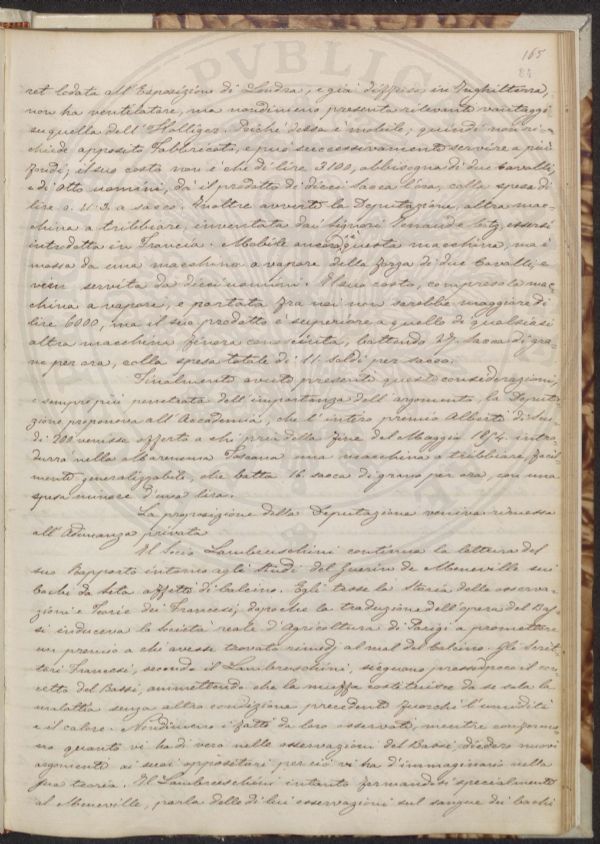 165
84
ret lodata all'Esposizione di Londra, e già diffusa in Inghilterra,
non ha ventilatore, ma nondimeno presenta rilevanti vantaggi
su quella dell'Holliger. Poiché dessa è mobile, quindi non ri-
chiede apposito Fabbricato, e può successivamente servire a più
Fondi; il suo costo non è che di lire 3100, abbisogna di due Cavalli,
e di Otto uomini, dà il prodotto di dieci sacca l'ora, colla spesa di
lire a sacco. Inoltre avverte la Deputazione, altra mac-
china a tribbiare, inventata dai Signori essersi
introdotta in Francia. Mobile ancora questa macchina, ma è
mossa da una macchina a vapore della forza di due Cavalli, e
vien servita da dieci uomini. Il suo costo, compresa la mac-
china a vapore, e portata fra noi non sarebbe maggiore di
lire 6000, ma il suo prodotto è superiore a quello di qualsiasi
altra macchina finora conosciuta, battendo 27 sacca di gra-
no per ora, colla spesa totale di 11 soldi per sacco.
Finalmente avute presenti queste considerazioni,
e sempre più penetrata dell'importanza dell'argomento, la Deputa-
zione proponeva all'Accademia, che l'intero premio Alberti di Scu-
di 200 venisse offerto a chi pria della fine del Maggio 1854 intro-
durrà nella Maremma Toscana una macchina a tribbiare, facil-
mente generalizzabile, che batta 16 sacca di grano per ora, con una
spesa minore d'una lira.
La proposizione della Deputazione veniva rimessa
all'Adunanza privata
Il Socio Lambruschini continua la lettura del
suo Rapporto intorno agli studi del Guerin de Meneville sui
bachi da Seta affetti di calcino. Egli tesse la Storia delle osserva-
zioni e Teorie dei Francesi, dopo che la traduzione dell'opera del Bas-
si induceva la Società reale d'Agricoltura di Parigi a promettere
un premio a chi avesse trovato rimedj al mal del calcino. Gli Scrit-
tori Francesi, secondo il Lambruschini, seguono pressappoco il con-
cetto del Bassi, ammettendo che la muffa costituisce da se sola la
malattia senza altra condizione precedente fuorchè l'umidità
e il calore. Nondimeno i fatti da loro osservati, mentre conferma-
no quanto vi ha di vero nelle osservazioni del Bassi, diedero nuovi
argomenti ai suoi oppositori per ciò vi ha d'immaginario nella
sua teoria. Il Lambruschini intanto fermandosi specialmente
al Meneville, parla delle di lui osservazioni sul sangue dei bachi